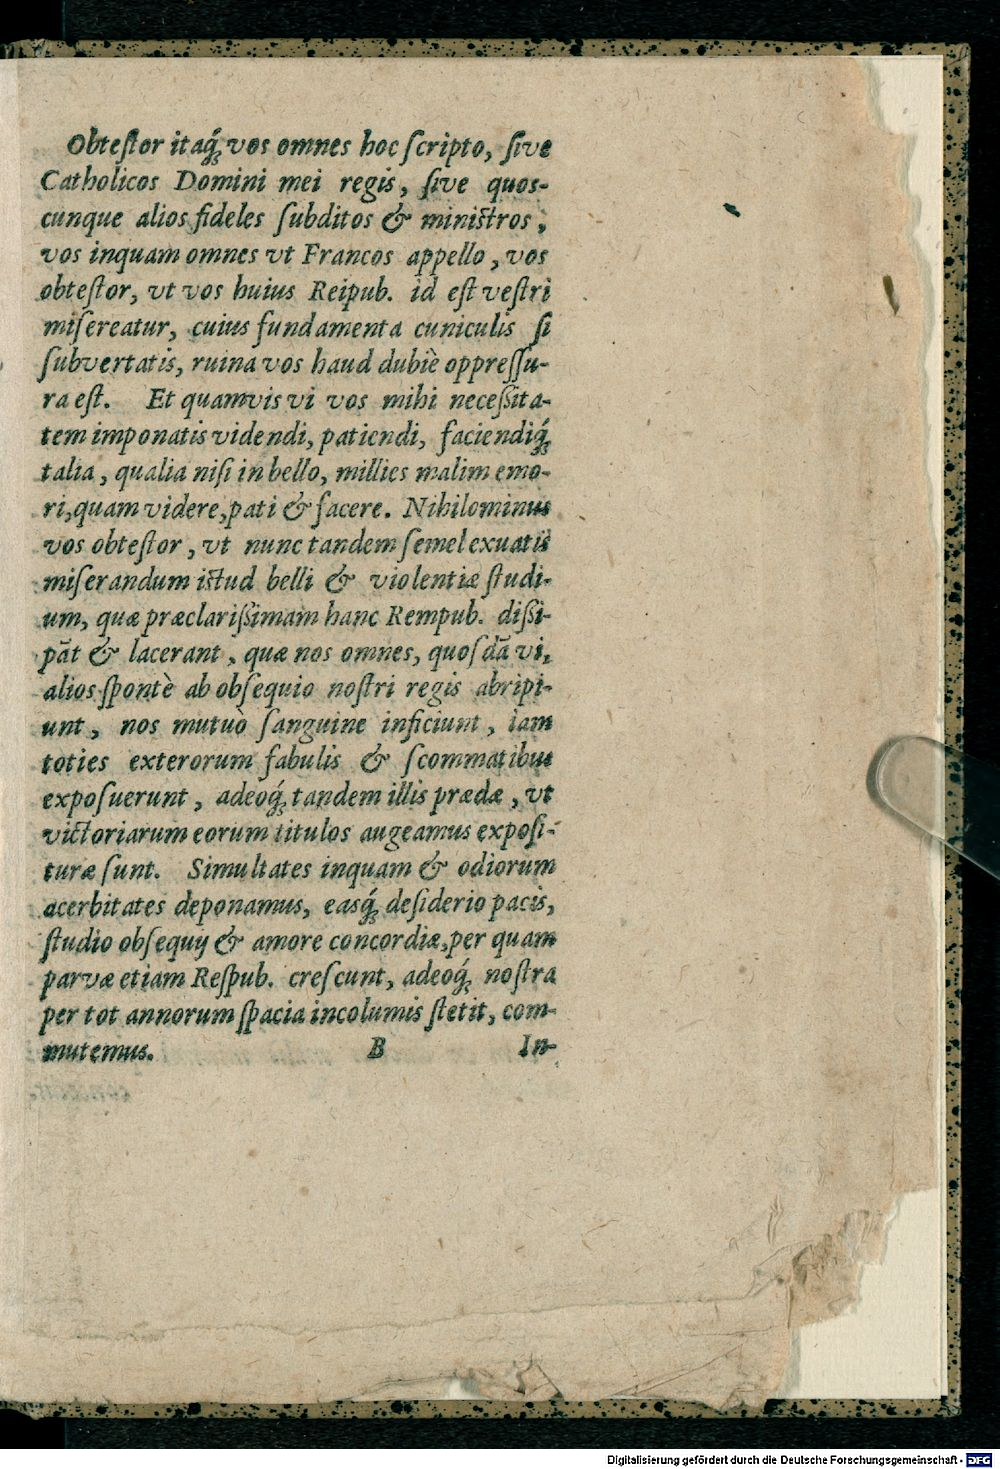 Obteſtor itaq́ꝫ vos omnes hoc ſcripto, ſive
Catholicos Domini mei regis, ſive quos-
cunque alios fideles ſubditos & miniſtros,
vos inquam omnes vt Francos appello, vos
obteſtor, vt vos huius Reipub. id eſt veſtri
miſereatur, cuius fundamenta cuniculis ſi
ſubvertatis, ruina vos haud dubiè oppreſſu-
ra eſt. Et quamvis vi vos mihi neceßita-
tem imponatis videndi, patiendi, faciendiq́ꝫ
talia, qualia niſi in bello, millies malim emo-
ri, quam videre, pati & facere. Nihilominus
vos obteſtor, vt nunc tandem ſemel exuatis
miſerandum iſtud belli & violentiæ ſtudi-
um, quæ præclarißimam hanc Rempub. dißi-
pãt & lacerant, quæ nos omnes, quoſdã vi,
alios ſpontè ab obſequio noſtri regis abripi-
unt, nos mutuò ſanguine inficiunt, iam
toties exterorum fabulis & ſcommatibus
expoſuerunt, adeoq́ꝫ tandem illis prædæ, vt
victoriarum eorum titulos augeamus expoſi-
turæ ſunt. Simultates inquam & odiorum
acerbitates deponamus, easq́ꝫ deſiderio pacis,
ſtudio obſequij & amore concordiæ, per quam
parvæ etiam Reſpub. creſcunt, adeoq́ꝫ noſtra
per tot annorum ſpacia incolumis ſtetit, com-
mutemus. B In-
Digitalisierung gefördert durch die Deutsche Forschungsgemeinschaft - DFG